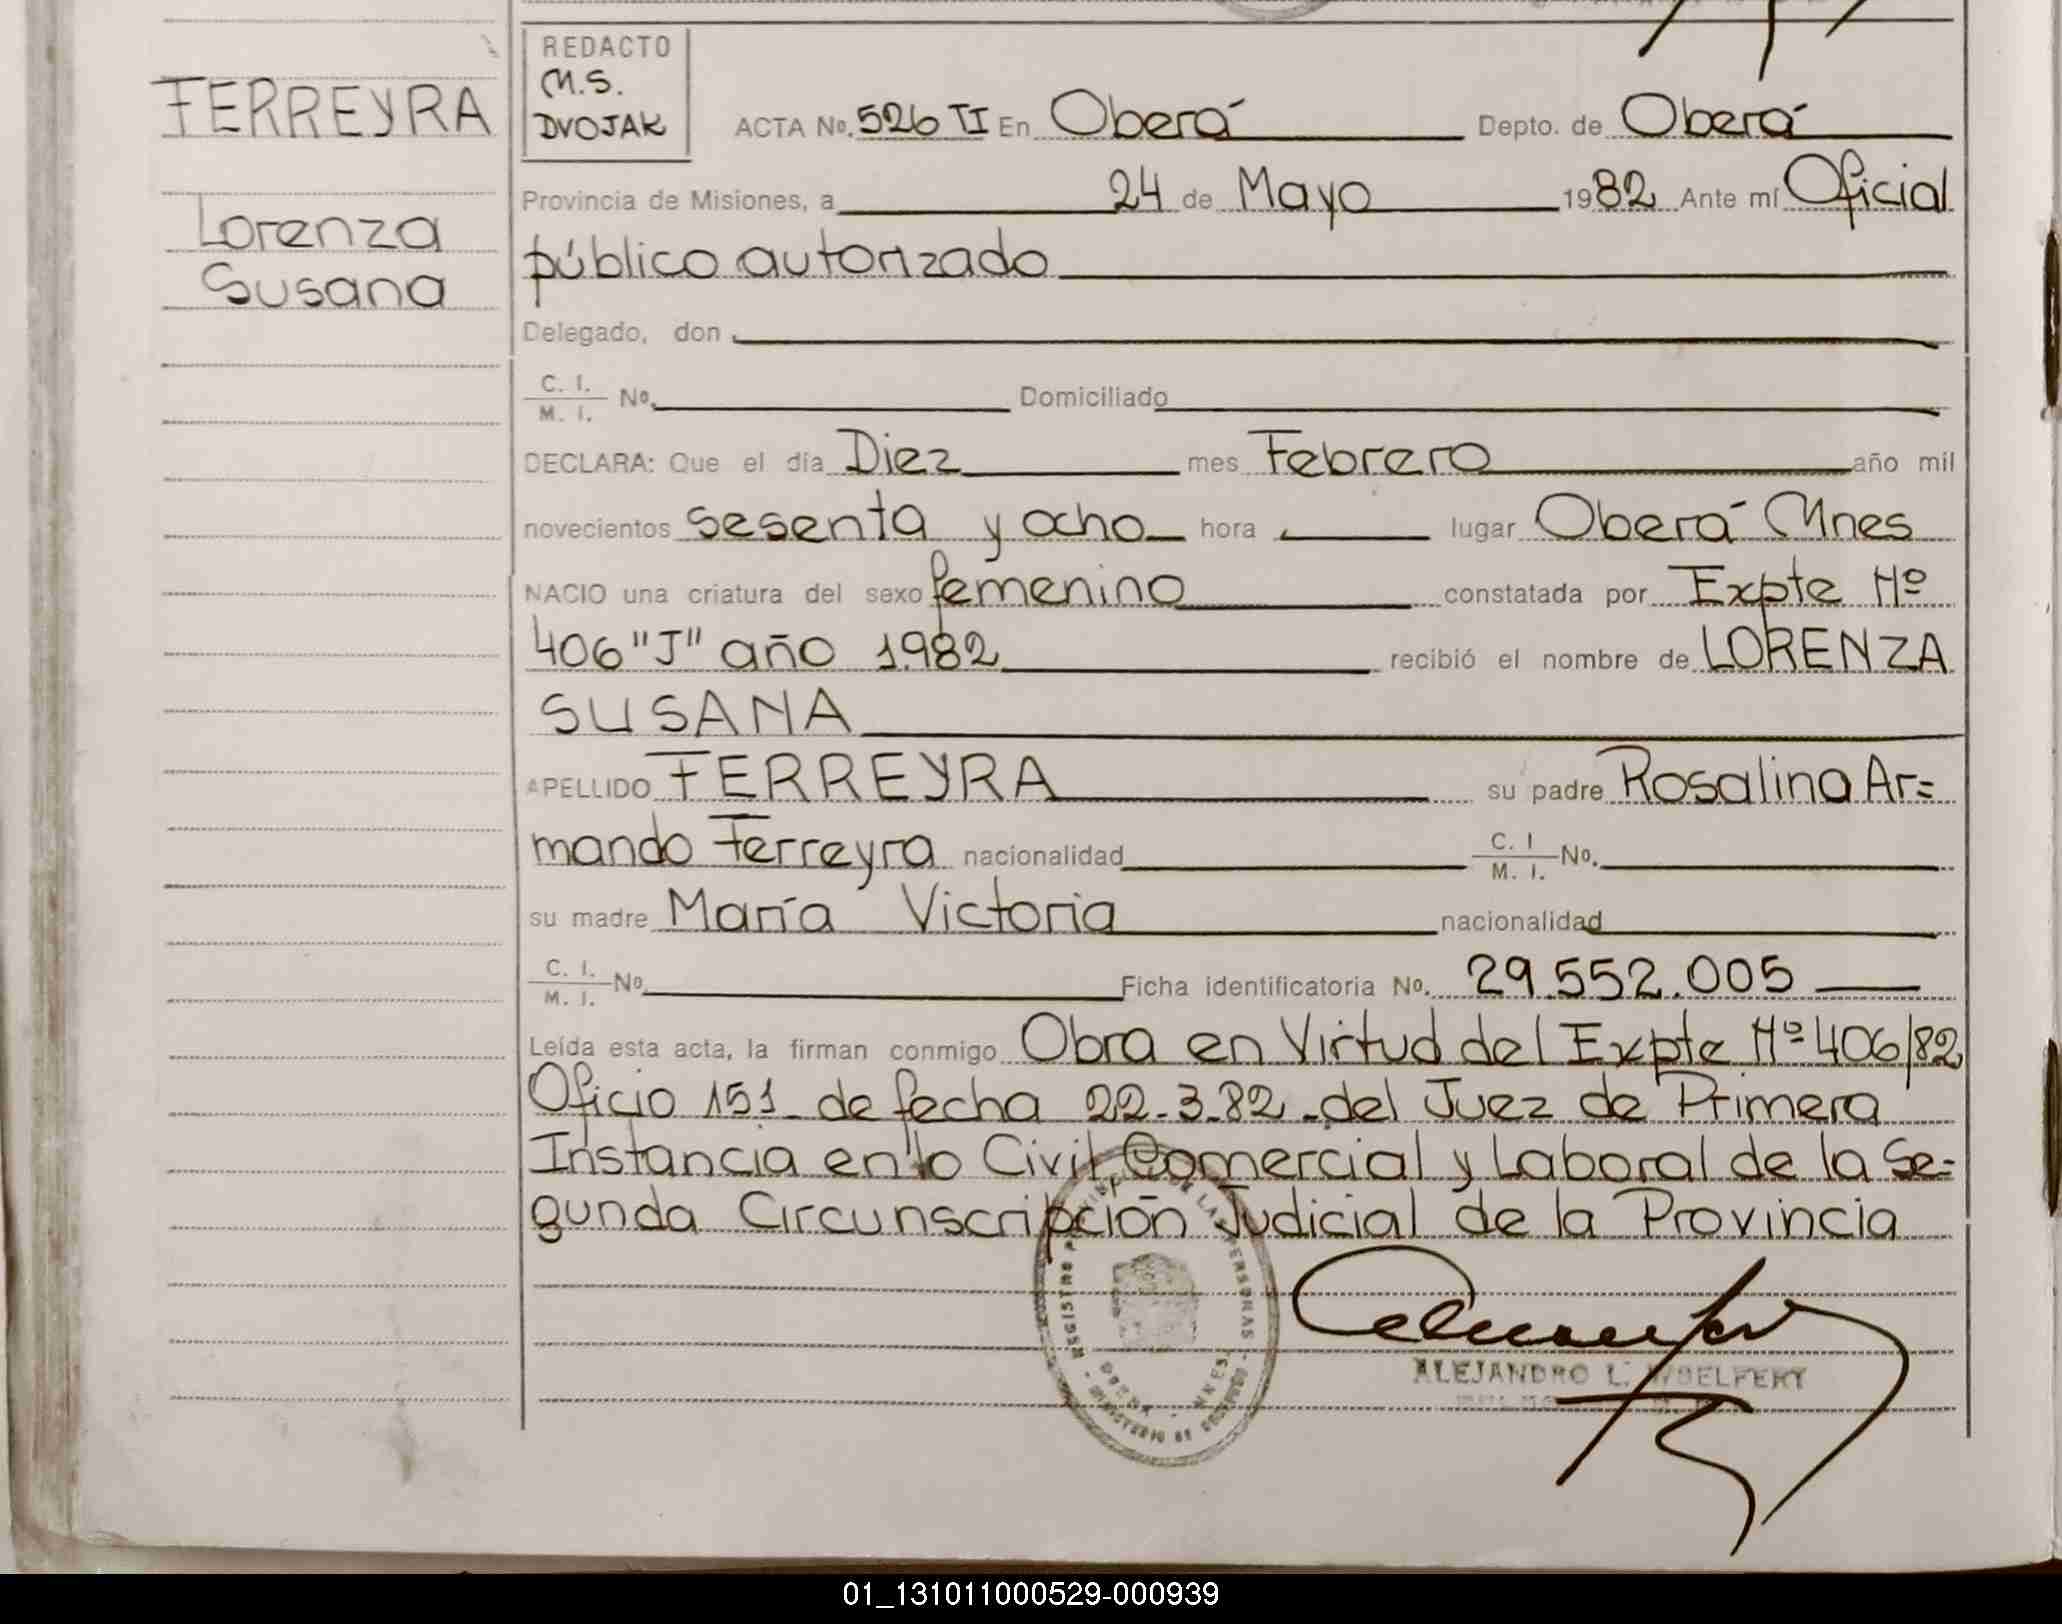 FERREYRA
Lorenza
Susana
REDACTO
M.S.
DVOJAK
ACTA No. 526 TI En Oberá Depto. de Oberá
Provincia de Misiones, a 24 de Mayo 1982 Ante mí Oficial
público autorizado
Delegado, don
C. I.
M. I. No. Domiciliado
DECLARA: Que el día Diez mes Febrero año mil
novecientos sesenta y ocho hora lugar Oberá Mnes
NACIO una criatura del sexo femenino constatada por Expte Nº
406 "J" año 1982 recibió el nombre de LORENZA
SUSANA
APELLIDO FERREYRA su padre Rosalino Ar=
mando Ferreyra nacionalidad C. I. M. I. No.
su madre María Victoria nacionalidad
C. I. M. I. No. Ficha identificatoria No. 29.552.005
Leída esta acta, la firman conmigo Obra en Virtud del Expte Nº 406/82
Oficio 151 de fecha 22-3-82 del Juez de Primera
Instancia en lo Civil Comercial y Laboral de la Se=
gunda Circunscripción Judicial de la Provincia
REGISTRO PROVINCIAL DE LAS PERSONAS
ALEJANDRO L. WOELFERT
01_131011000529-000939